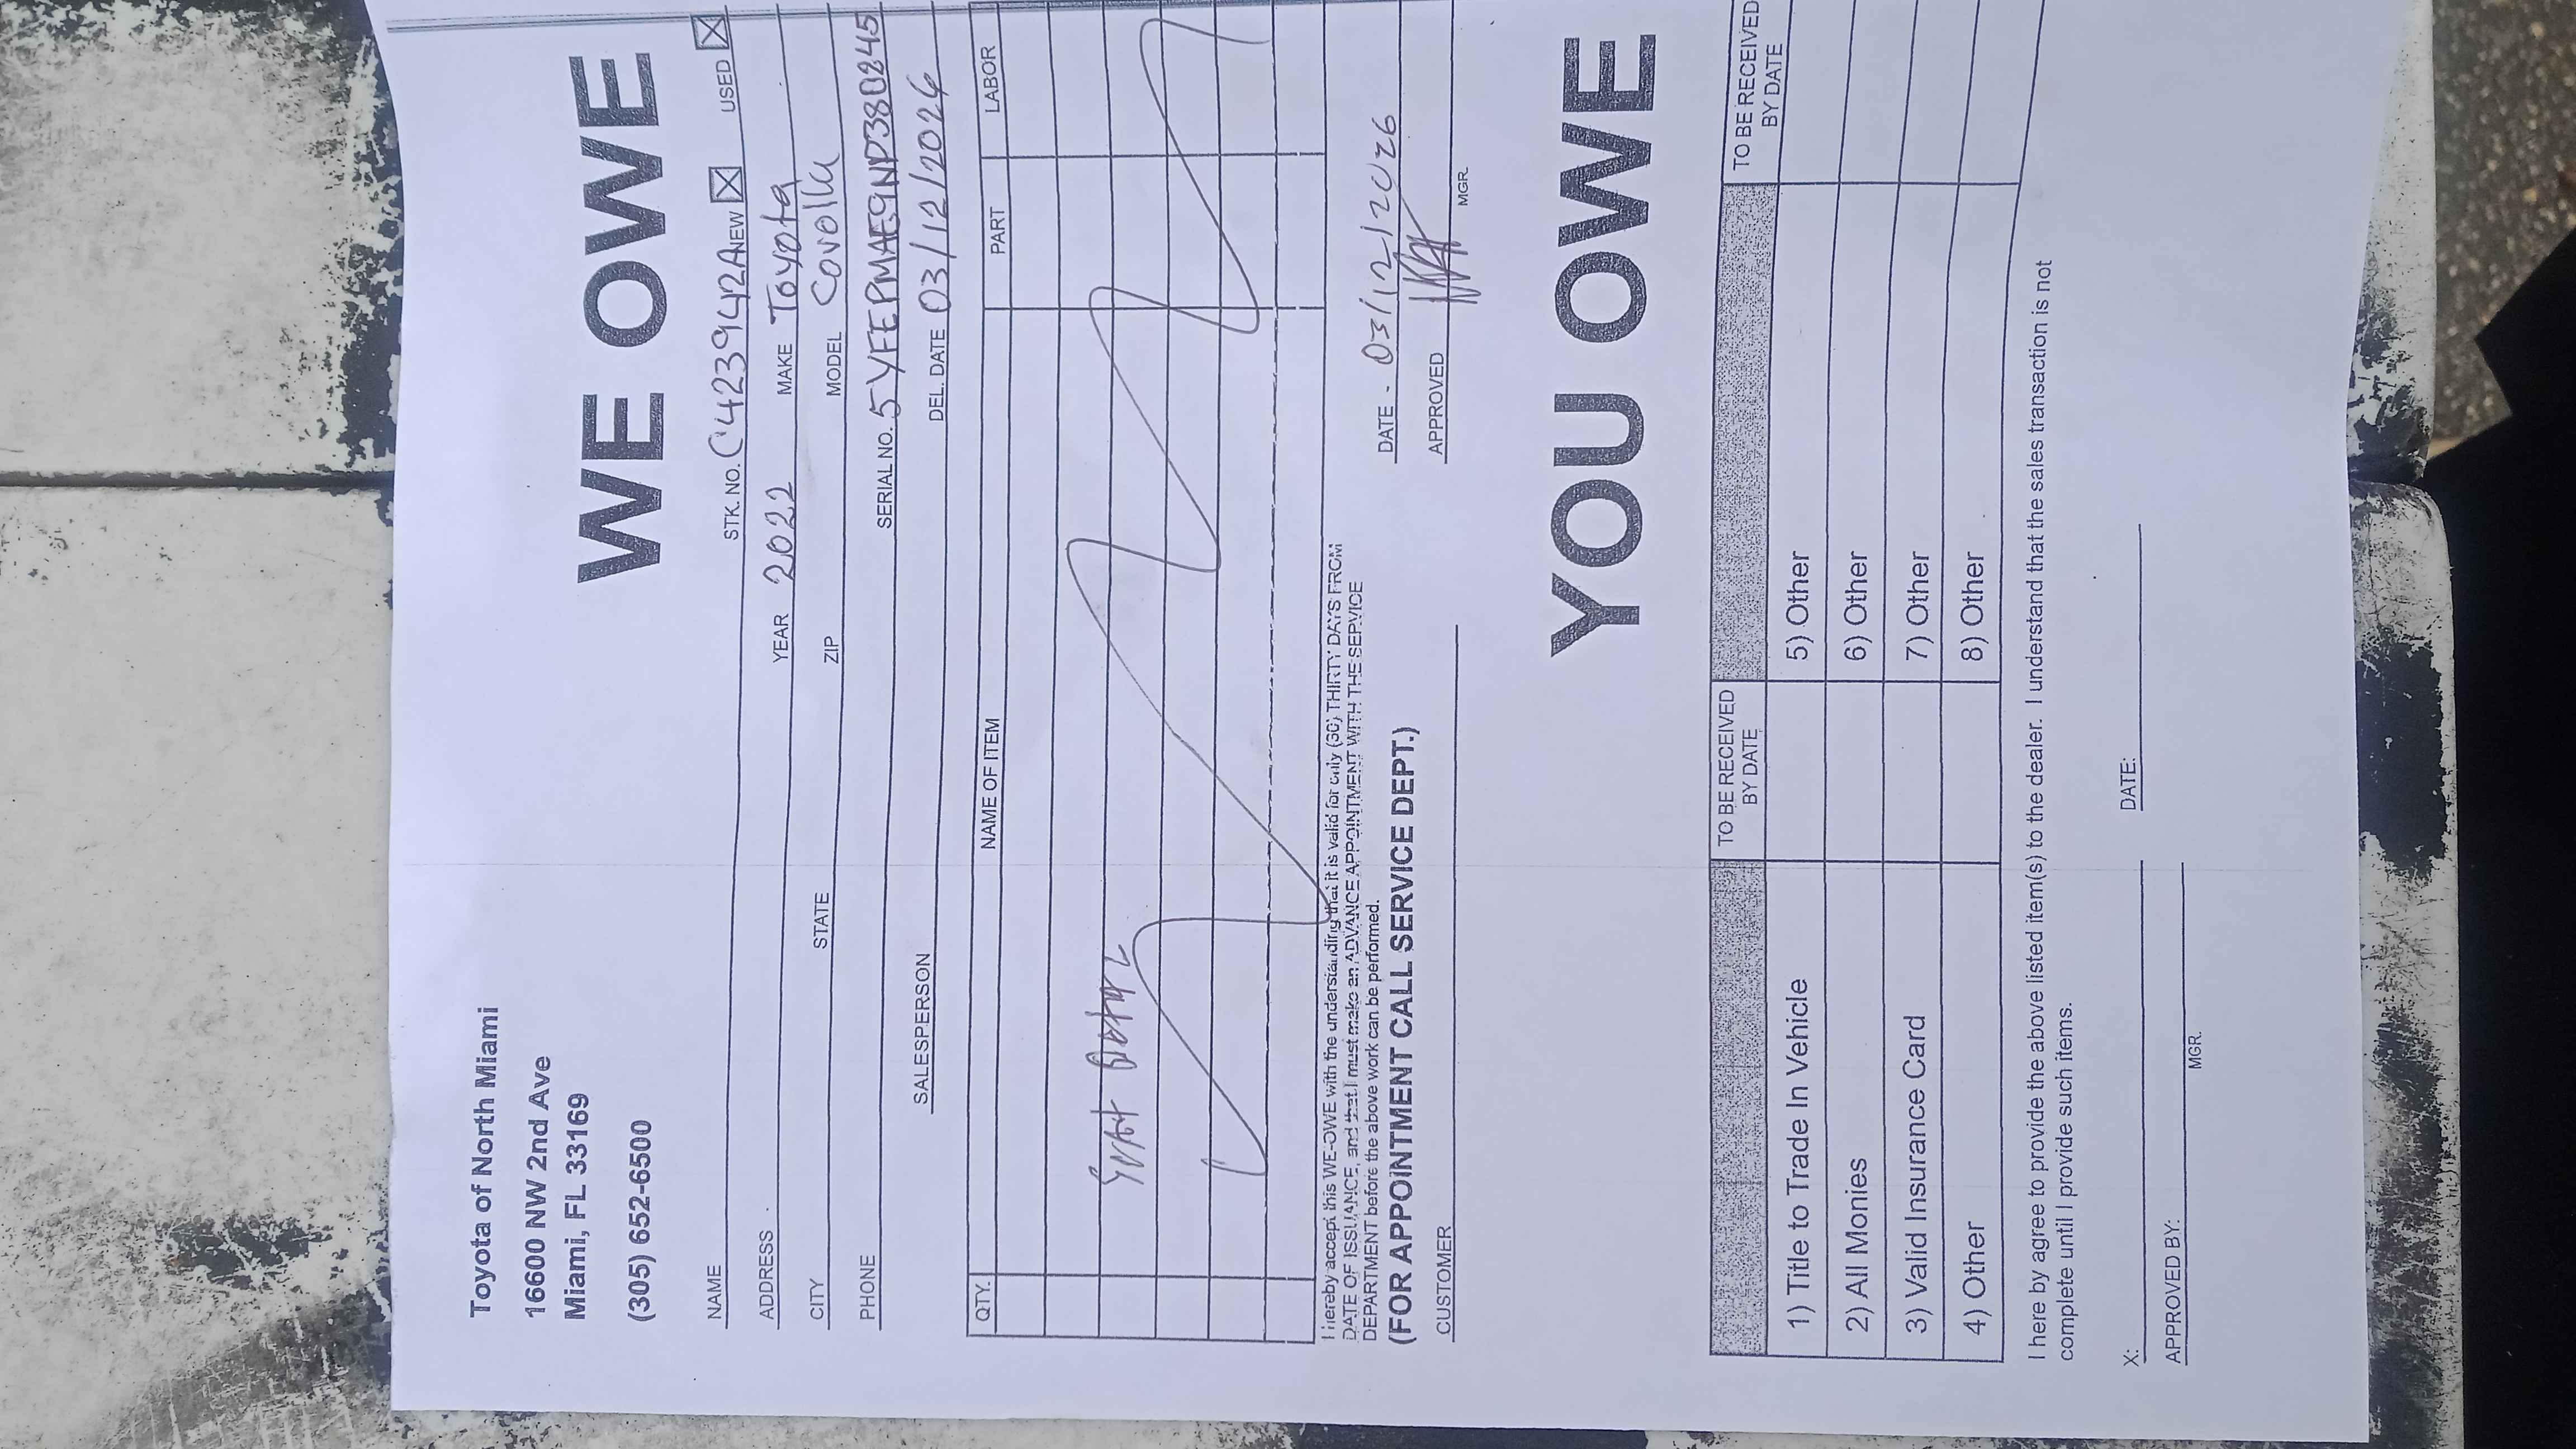 Toyota of North Miami
16600 NW 2nd Ave
Miami, FL 33169
(305) 652-6500
WE OWE
NAME STK. NO. C423942A NEW ☒ USED ☒
ADDRESS YEAR 2022 MAKE Toyota
CITY STATE ZIP MODEL Corolla
PHONE SERIAL NO. 5YFEPMAE9NP380245
SALESPERSON DEL. DATE 03/12/2026
QTY. NAME OF ITEM PART LABOR
I hereby accept this WE-OWE with the understanding that it is valid for only (30) THIRTY DAYS FROM
DATE OF ISSUANCE, and that I must make an ADVANCE APPOINTMENT WITH THE SERVICE
DEPARTMENT before the above work can be performed.
(FOR APPOINTMENT CALL SERVICE DEPT.)
DATE - 03/12/2026
CUSTOMER APPROVED
MGR.
YOU OWE
TO BE RECEIVED BY DATE TO BE RECEIVED BY DATE
1) Title to Trade In Vehicle 5) Other
2) All Monies 6) Other
3) Valid Insurance Card 7) Other
4) Other 8) Other
I here by agree to provide the above listed item(s) to the dealer. I understand that the sales transaction is not
complete until I provide such items.
X: DATE:
APPROVED BY:
MGR.